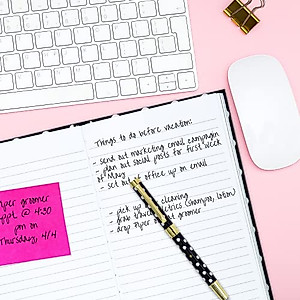 Things to do before vacation:
- send out marketing email campaign
- plan out social posts for first week
of May
- set out office up on email
- pick up dry cleaning
- grab travel toiletries (shampoo, lotion)
- drop Piper at groomer
Piper groomer
appt. @ 4:30
pm on
Thursday, 4/4